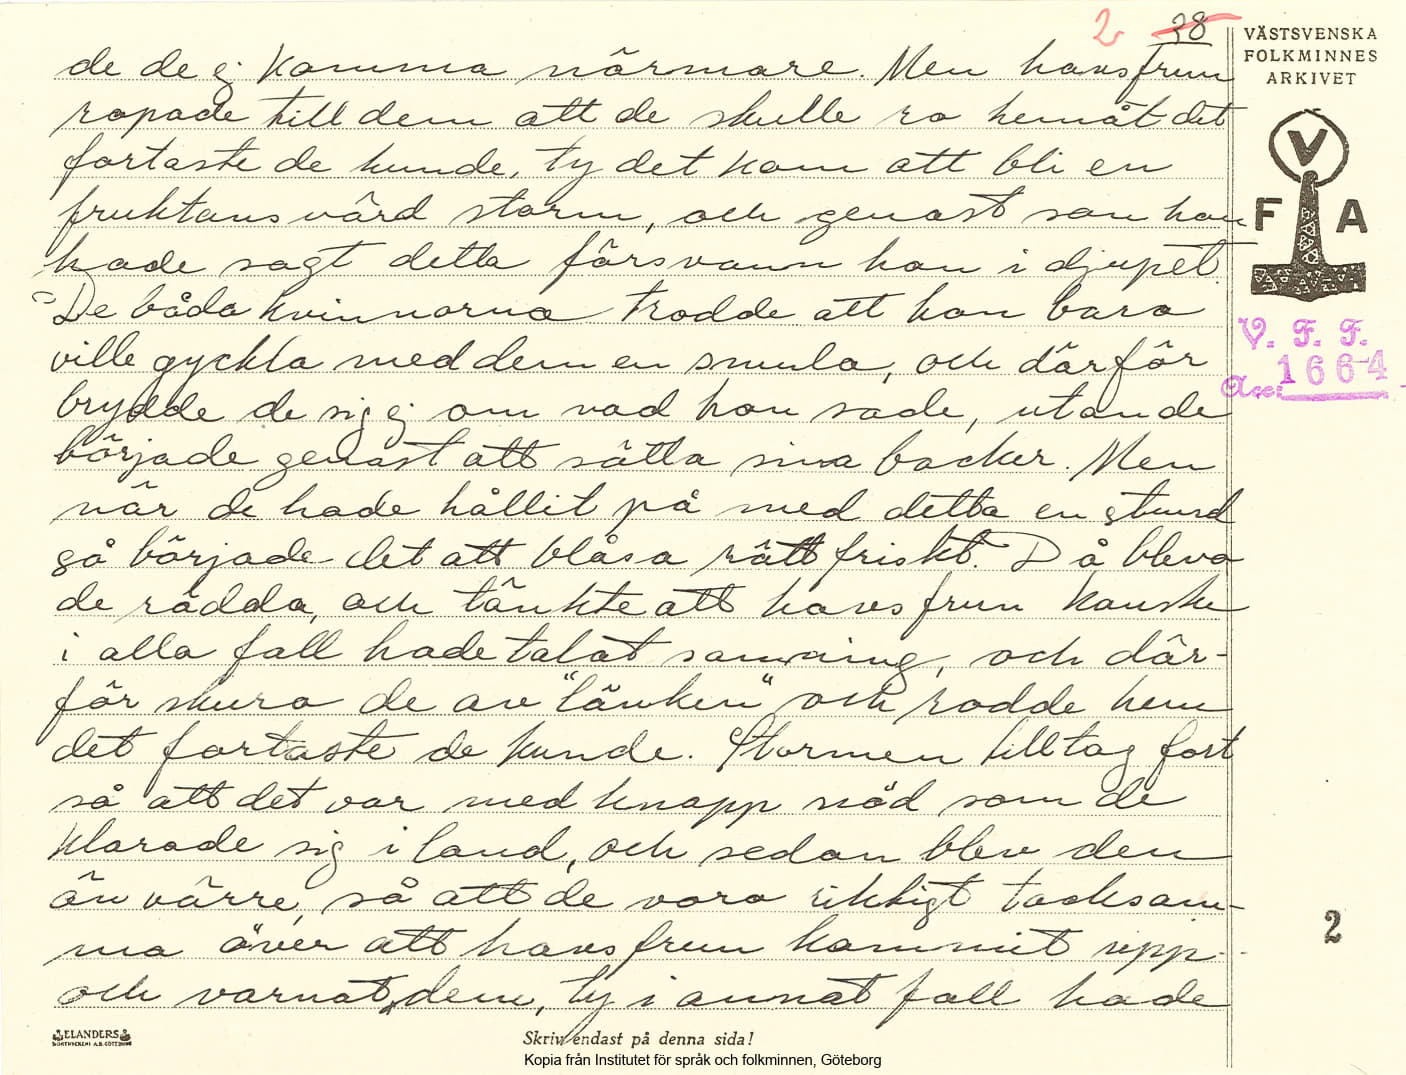 2 38
VÄSTSVENSKA
FOLKMINNES
ARKIVET
de de ej komma närmare. Men havsfrun
ropade till dem att de skulle ro hemåt det
fortaste de kunde, ty det kom att bli en
fruktansvärd storm, och genast som hon
hade sagt detta försvann hon i djupet.
De båda kvinnorna trodde att hon bara
ville gyckla med dem en smula, och därför
brydde de sig ej om vad hon sade, utan de
började genast att sätta sina backor. Men
när de hade hållit på med detta en stund
så började det att blåsa rätt friskt. Då blevo
de rädda, och tänkte att havsfrun kanske
i alla fall hade talat sanning, och där-
för skuro de av "länken" och rodde hem
det fortaste de kunde. Stormen tilltog fort
så att det var med knapp nöd som de
klarade sig i land, och sedan blev den
än värre, så att de voro riktigt tacksam-
ma över att havsfrun kommit upp
och varnat dem, ty i annat fall hade
V
F A
V. F. F.
Acc: 1664
2
ELANDERS
Skriv endast på denna sida!
Kopia från Institutet för språk och folkminnen, Göteborg